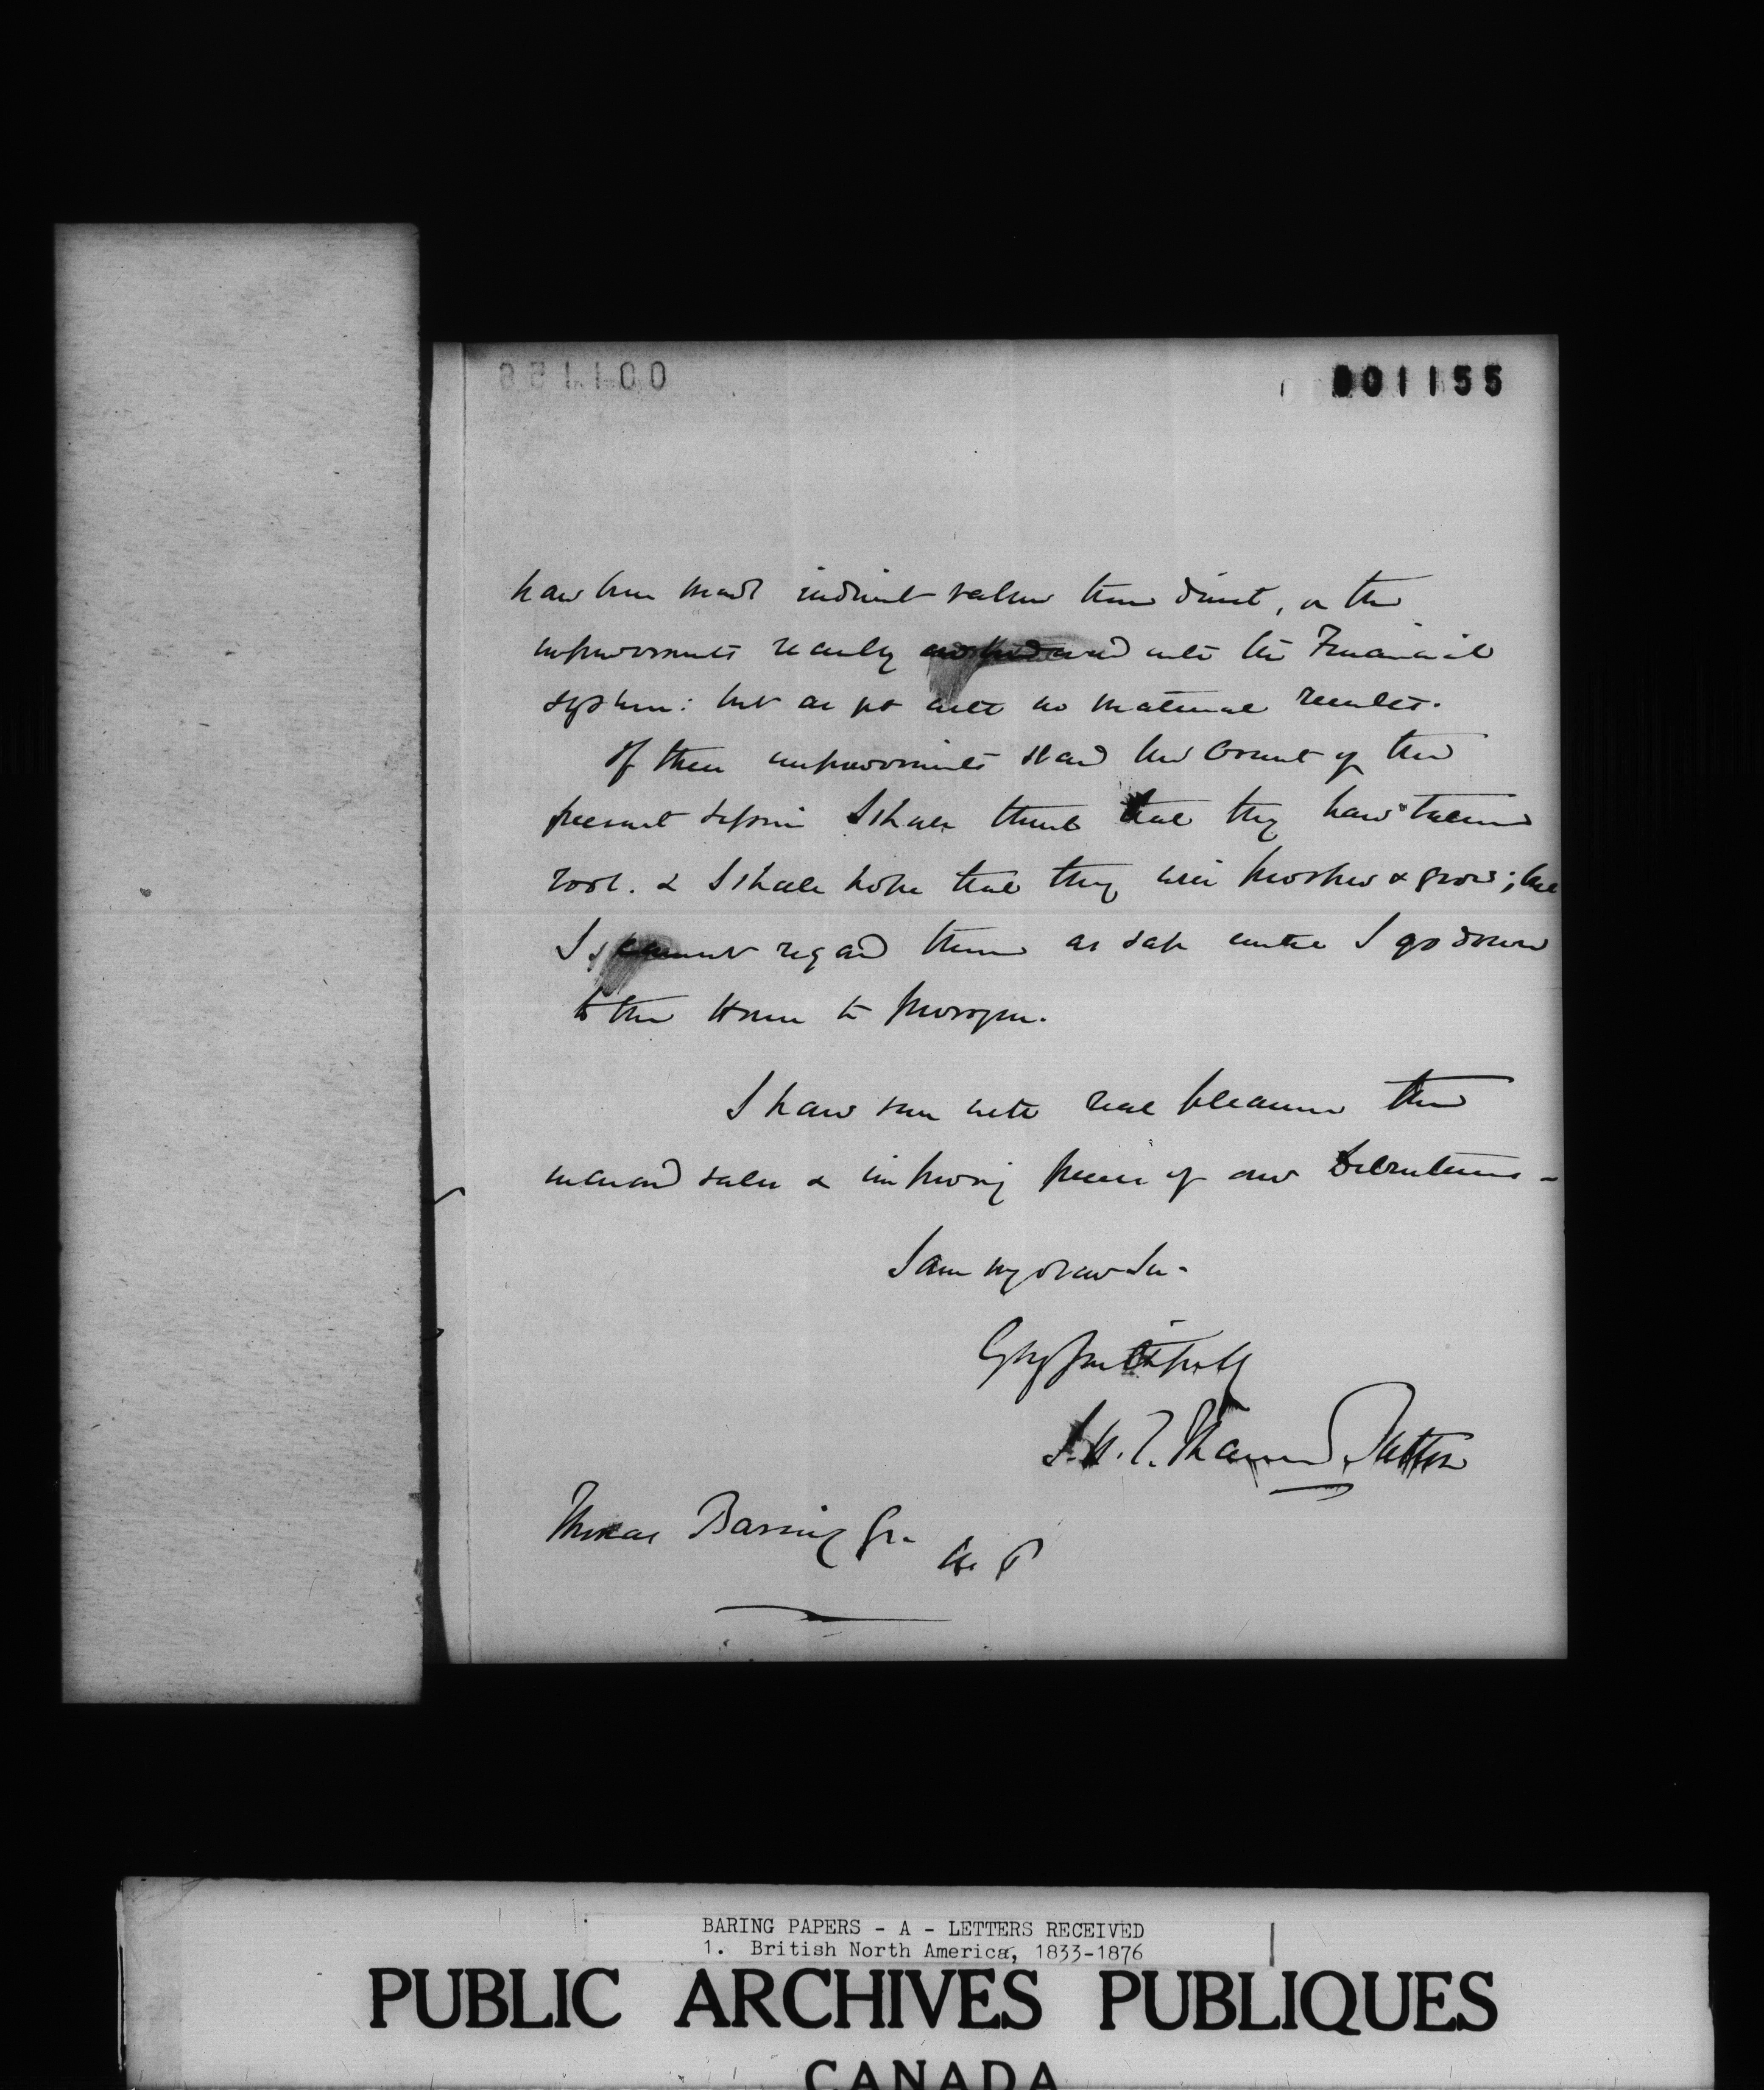 001155
have been made indirect rather than direct, on the
improvements recently introduced into the Financial
system: but as yet with no material results.
If these improvements stand the brunt of the
present Session I shall think that they have taken
root. & I shall hope that they will prosper & grow; but
I cannot regard them as safe until I go down
to the House to prorogue.
I have seen with real pleasure the
increased sales & improving price of our Debentures -
I am my dear Sir -
Yrs faithfully
J. H. T. Manners Sutton
Thomas Baring Esqr.
M. P
BARING PAPERS - A - LETTERS RECEIVED
1. British North America, 1833-1876
PUBLIC ARCHIVES PUBLIQUES
CANADA